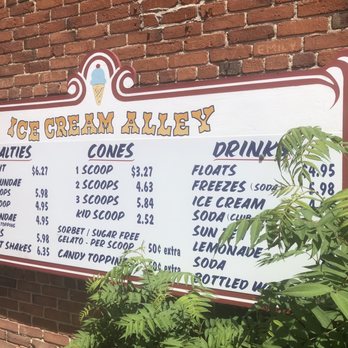 EMILY
ICE CREAM ALLEY
CONES
1 SCOOP $3.27
2 SCOOPS 4.63
3 SCOOPS 5.84
KID SCOOP 2.52
SORBET / SUGAR FREE
GELATO - PER SCOOP 50¢ extra
CANDY TOPPING 50¢ extra
DRINK
FLOATS 4.95
FREEZES (SODA 5.98
ICE CREAM
SODA (CLUB
SUN
LEMONADE
SODA
BOTTLED
$6.27
5.98
4.95
4.95
5.98
SHAKES 6.35